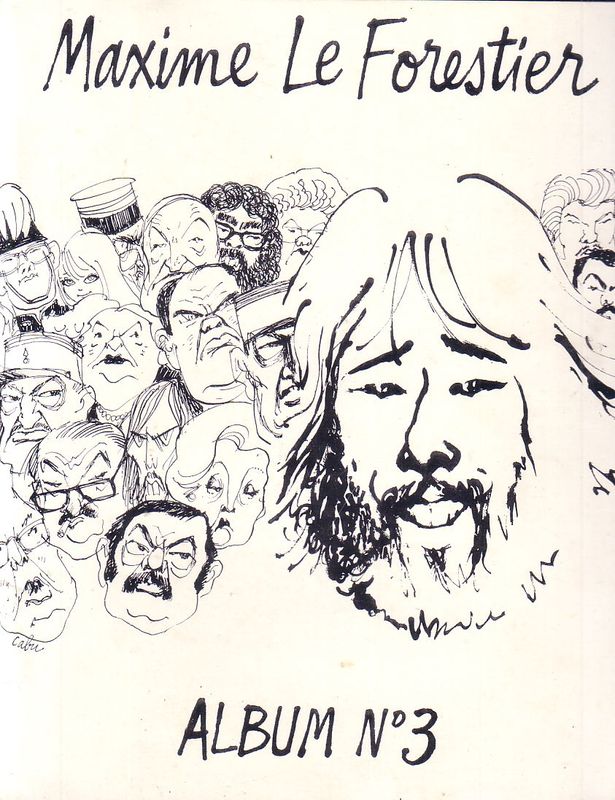 Maxime Le Forestier
cabu
ALBUM Nº3